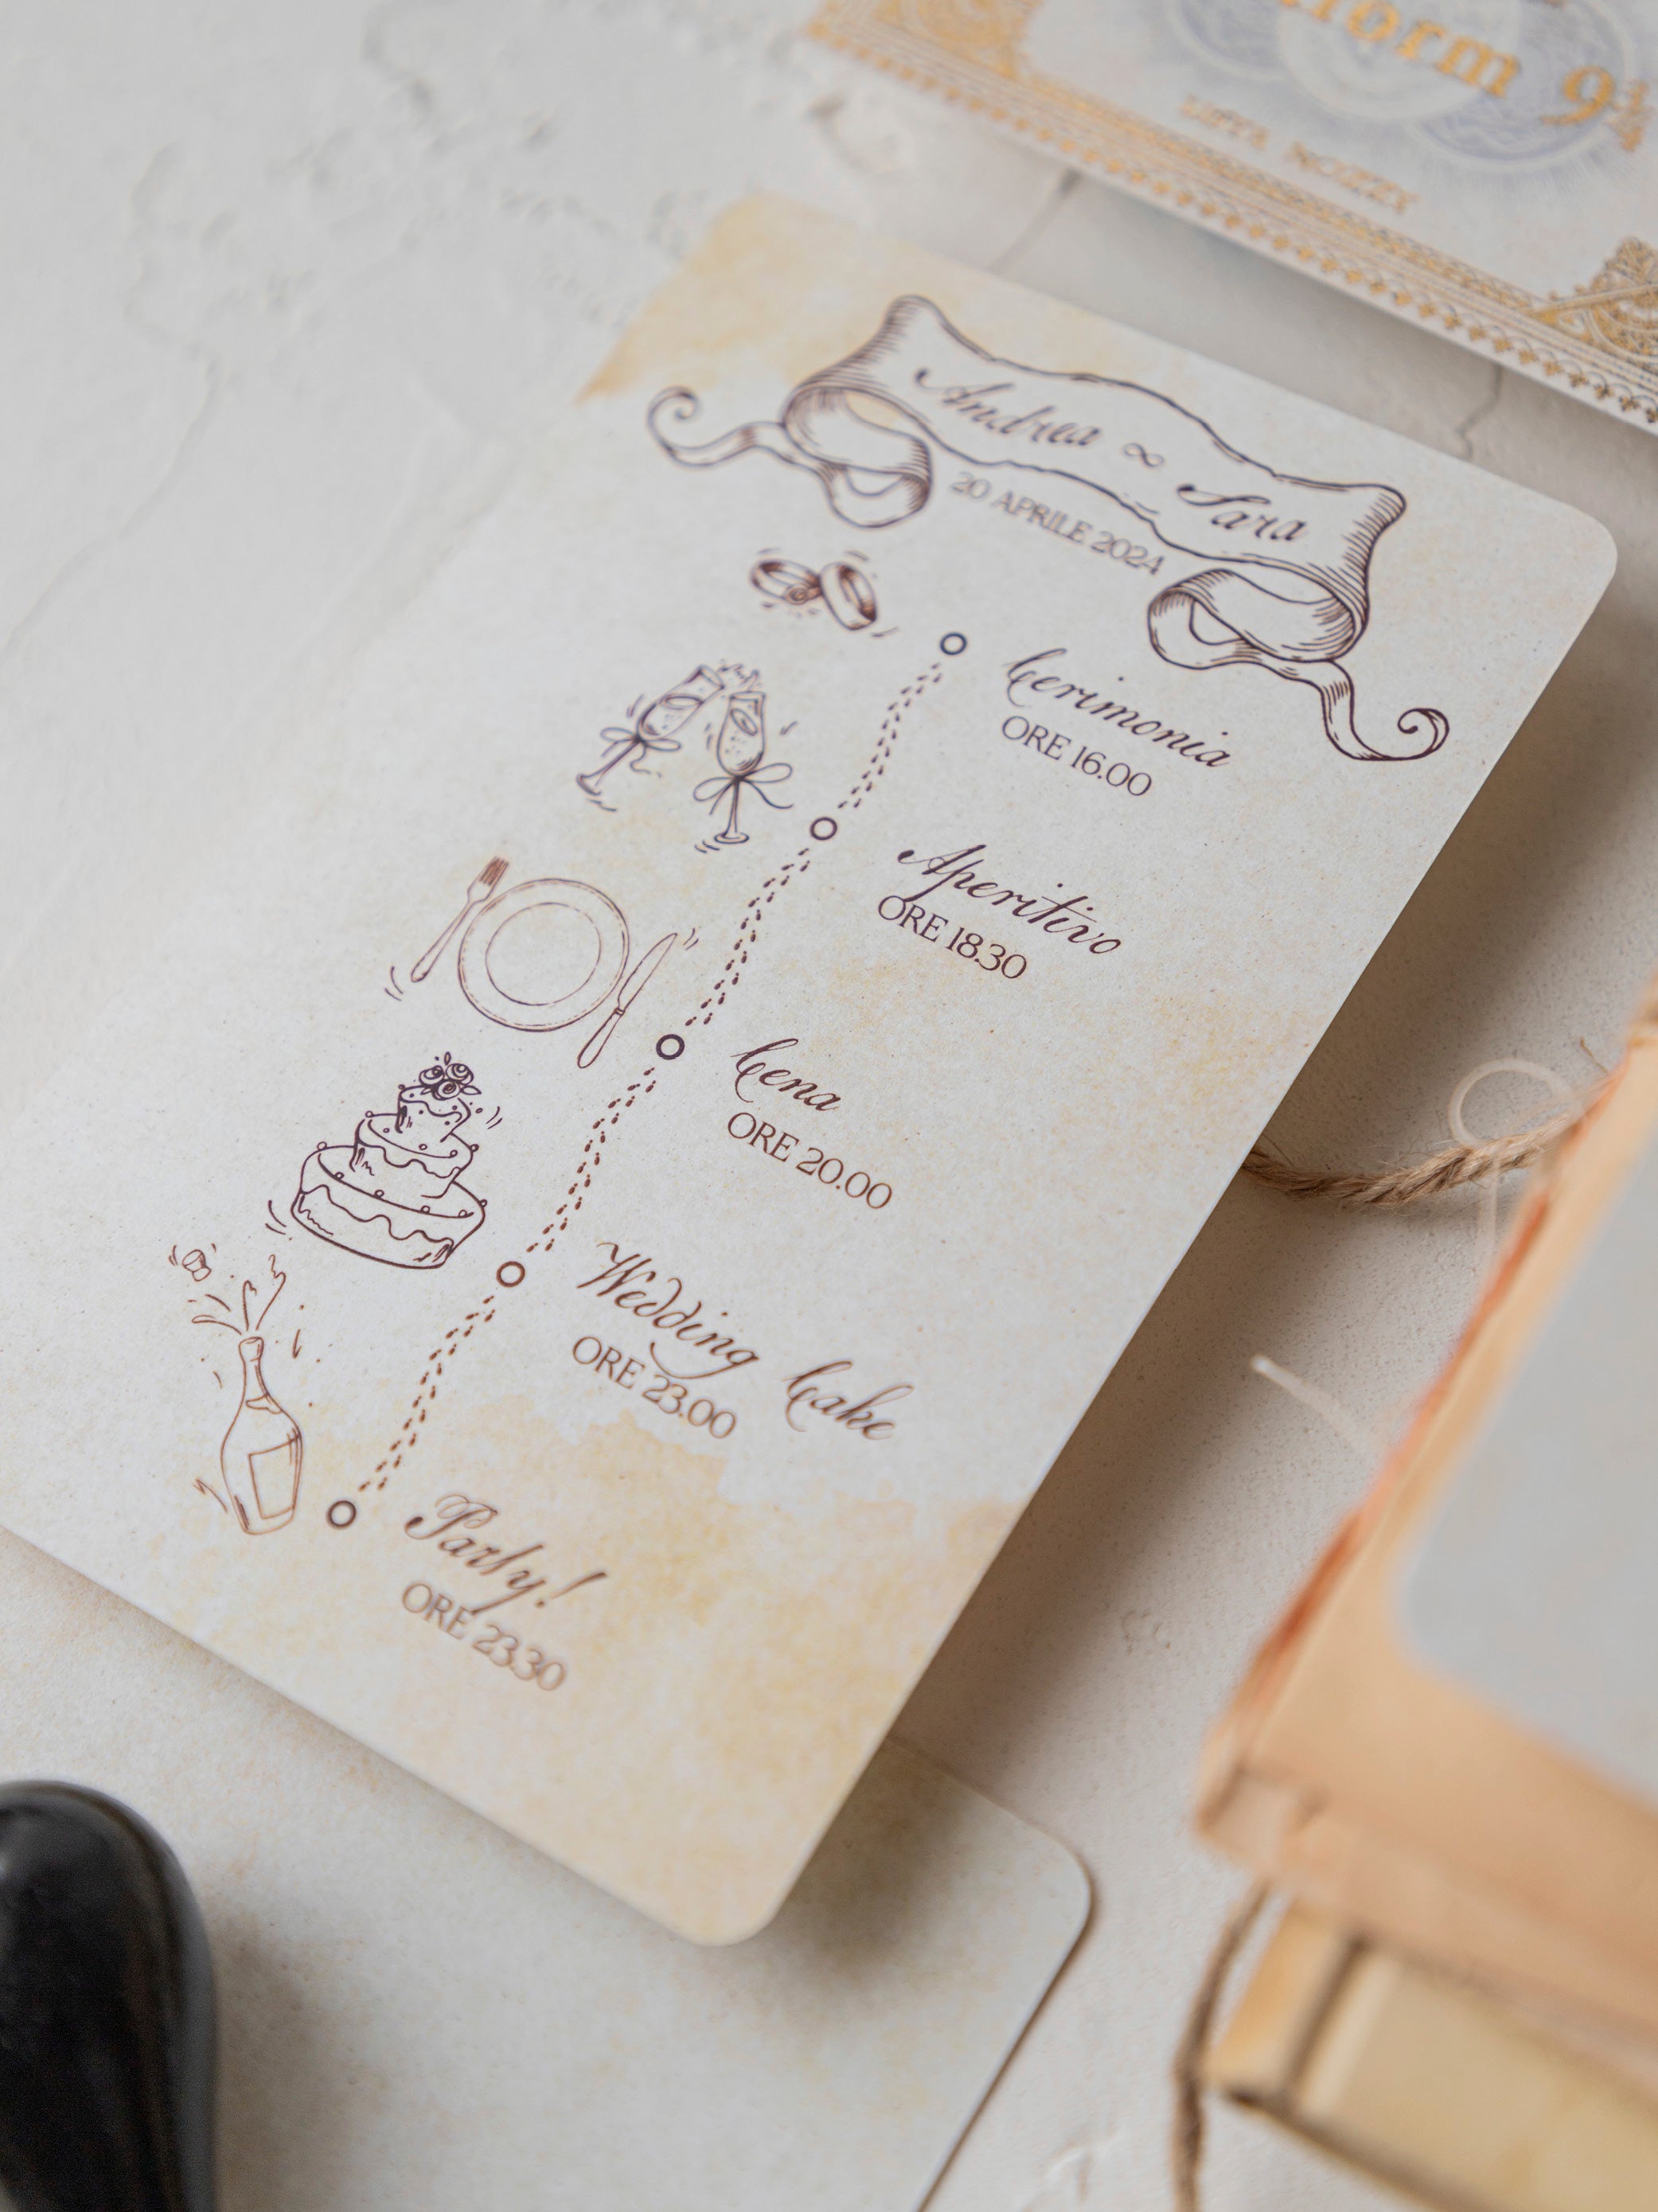 9¾
LISTA NOZZE
Andrea ∞ Sara
20 APRILE 2024
Cerimonia
ORE 16.00
Aperitivo
ORE 18.30
Cena
ORE 20.00
Wedding Cake
ORE 23.00
Party!
ORE 23.30